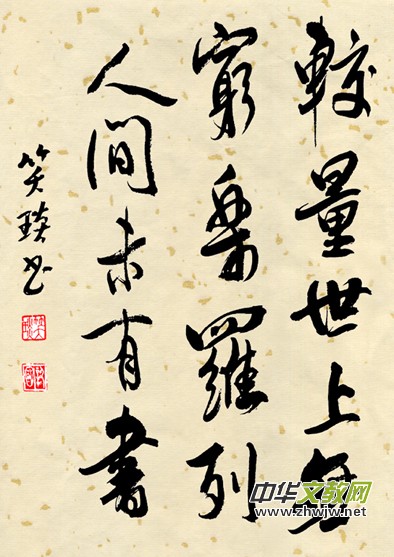 較量世上無
窮樂羅列
人間未有書
笑琰书
中华文教网
www.zhwjw.net